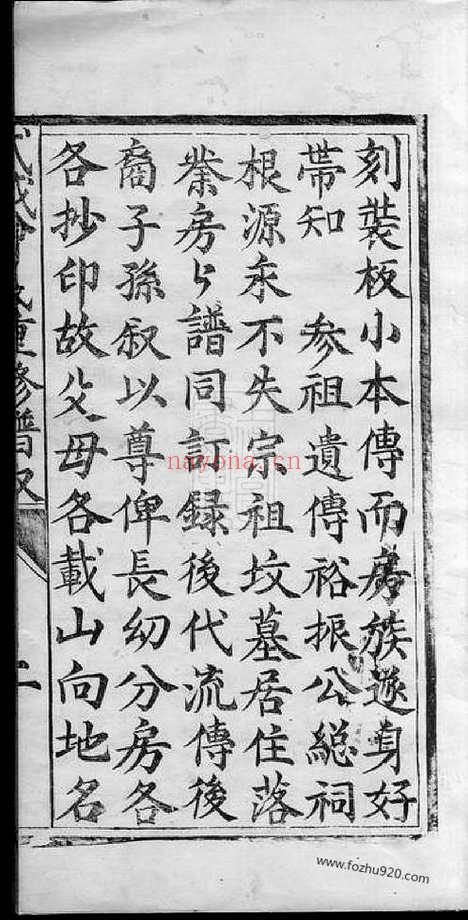 刻裝板小本傳而房族遂身好
帶知 参祖遺傳裕振公総祠
根源永不失宗祖坟墓居住落
業房㕕譜同訂録後代流傳後
裔子孫叙以尊俾長幼分房各
各抄印故父母各載山向地名
重修譜叙
二
nayona.cn
www.fozhu920.com